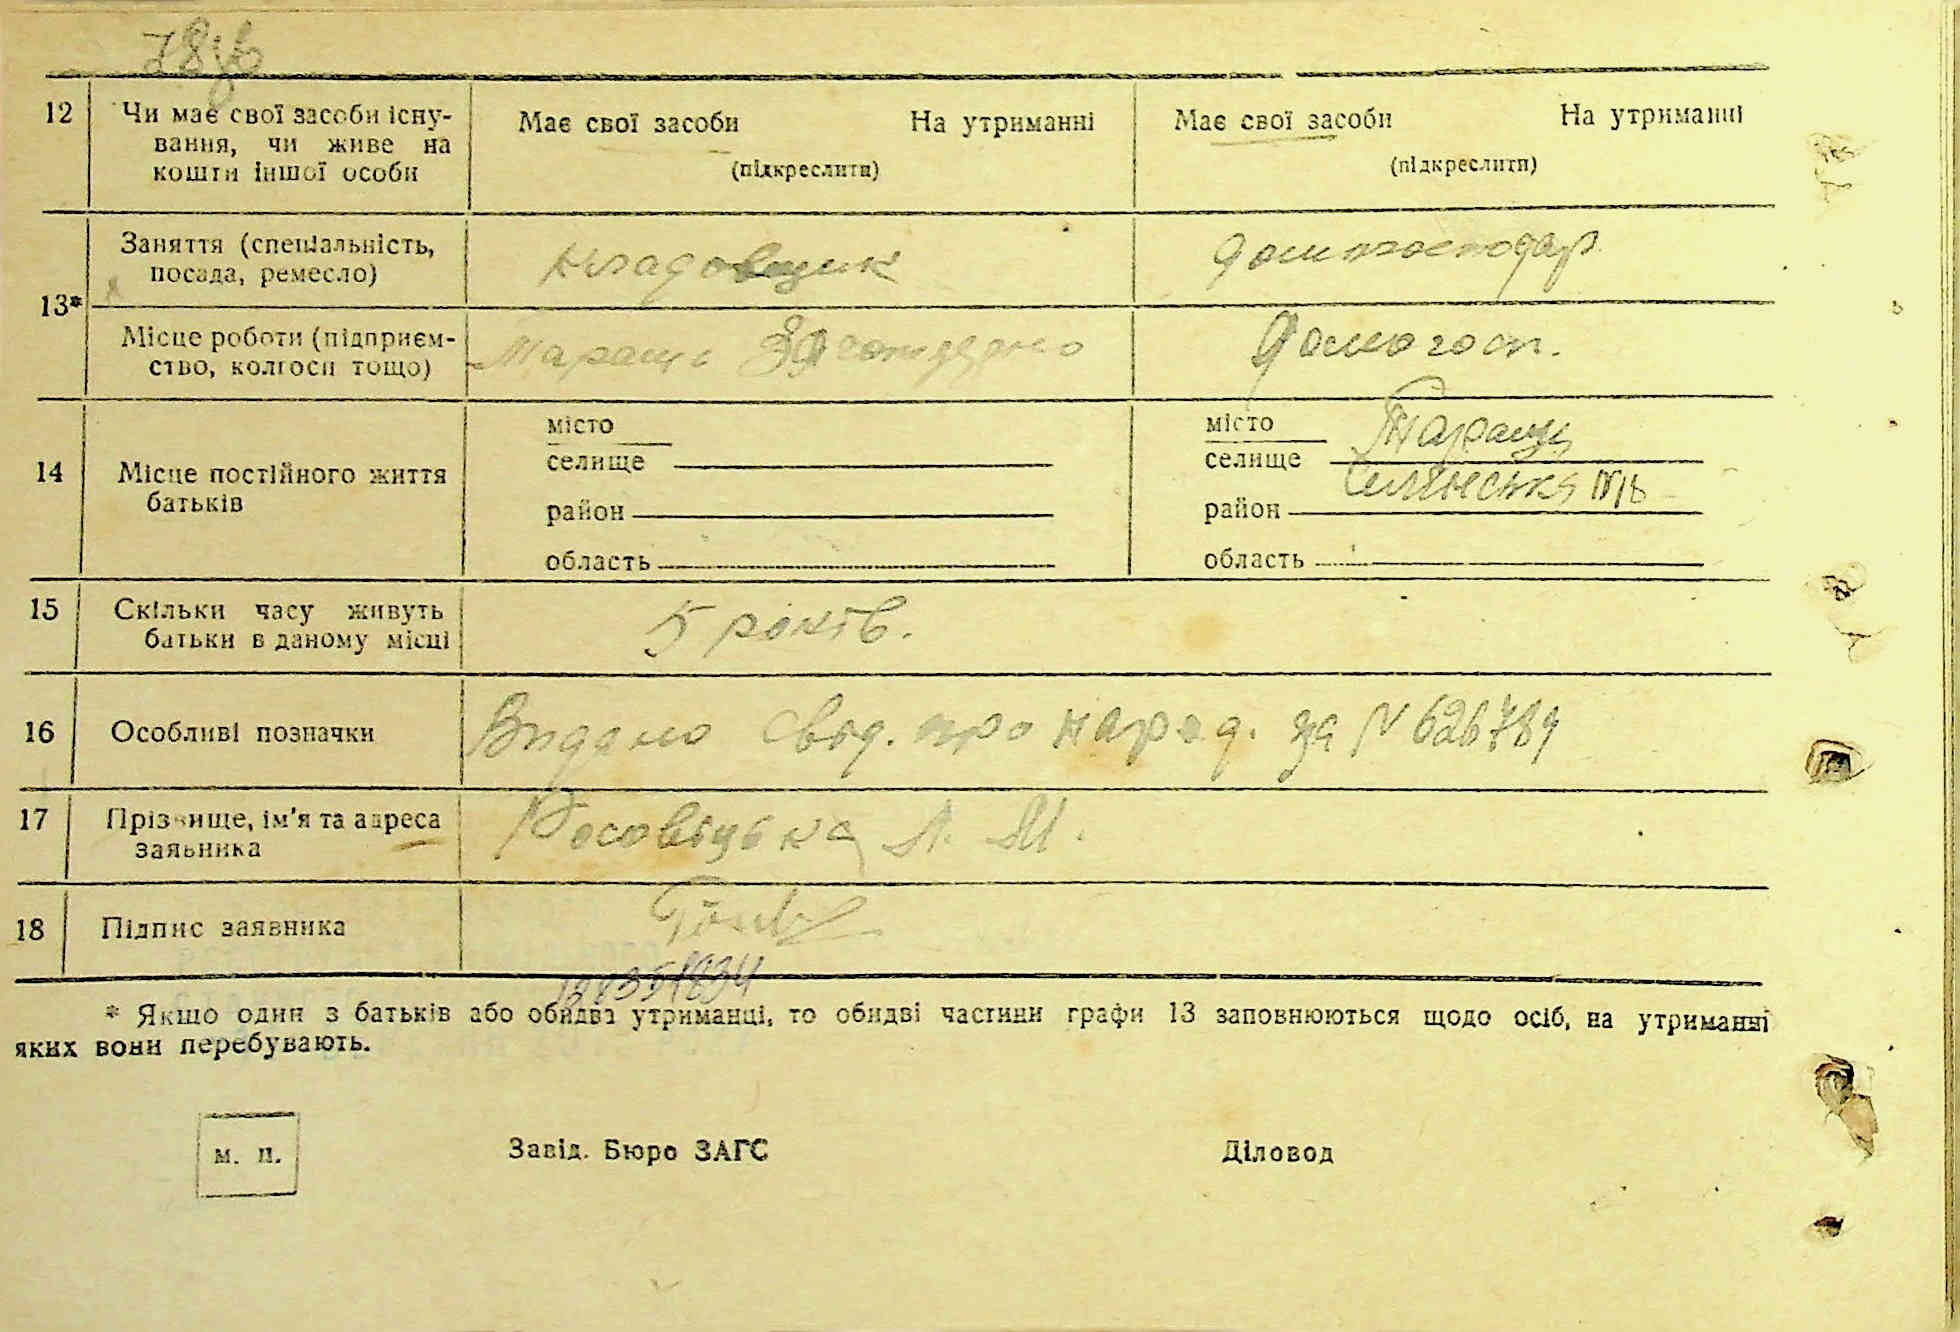 12 Чи має свої засоби існу-
вання, чи живе на
кошти іншої особи
Має свої засоби На утриманні
(підкреслити)
Має свої засоби На утриманні
(підкреслити)
13*
Заняття (спеціальність,
посада, ремесло)
кладовщик
домогосподар
Місце роботи (підприєм-
ство, колгосп тощо)
Домогосп.
14 Місце постійного життя
батьків
місто
селище
район
область
місто Таращ
селище
район
область
15 Скільки часу живуть
батьки в даному місці
5 років.
16 Особливі позначки
Видано свід. про народ. за N 626789
17 Прізвище, ім'я та адреса
заявника
Росовіцька Л. М.
18 Підпис заявника
* Якщо один з батьків або обидва утриманці, то обидві частини графи 13 заповнюються щодо осіб, на утриманні
яких вони перебувають.
м. п.
Завід. Бюро ЗАГС
Діловод